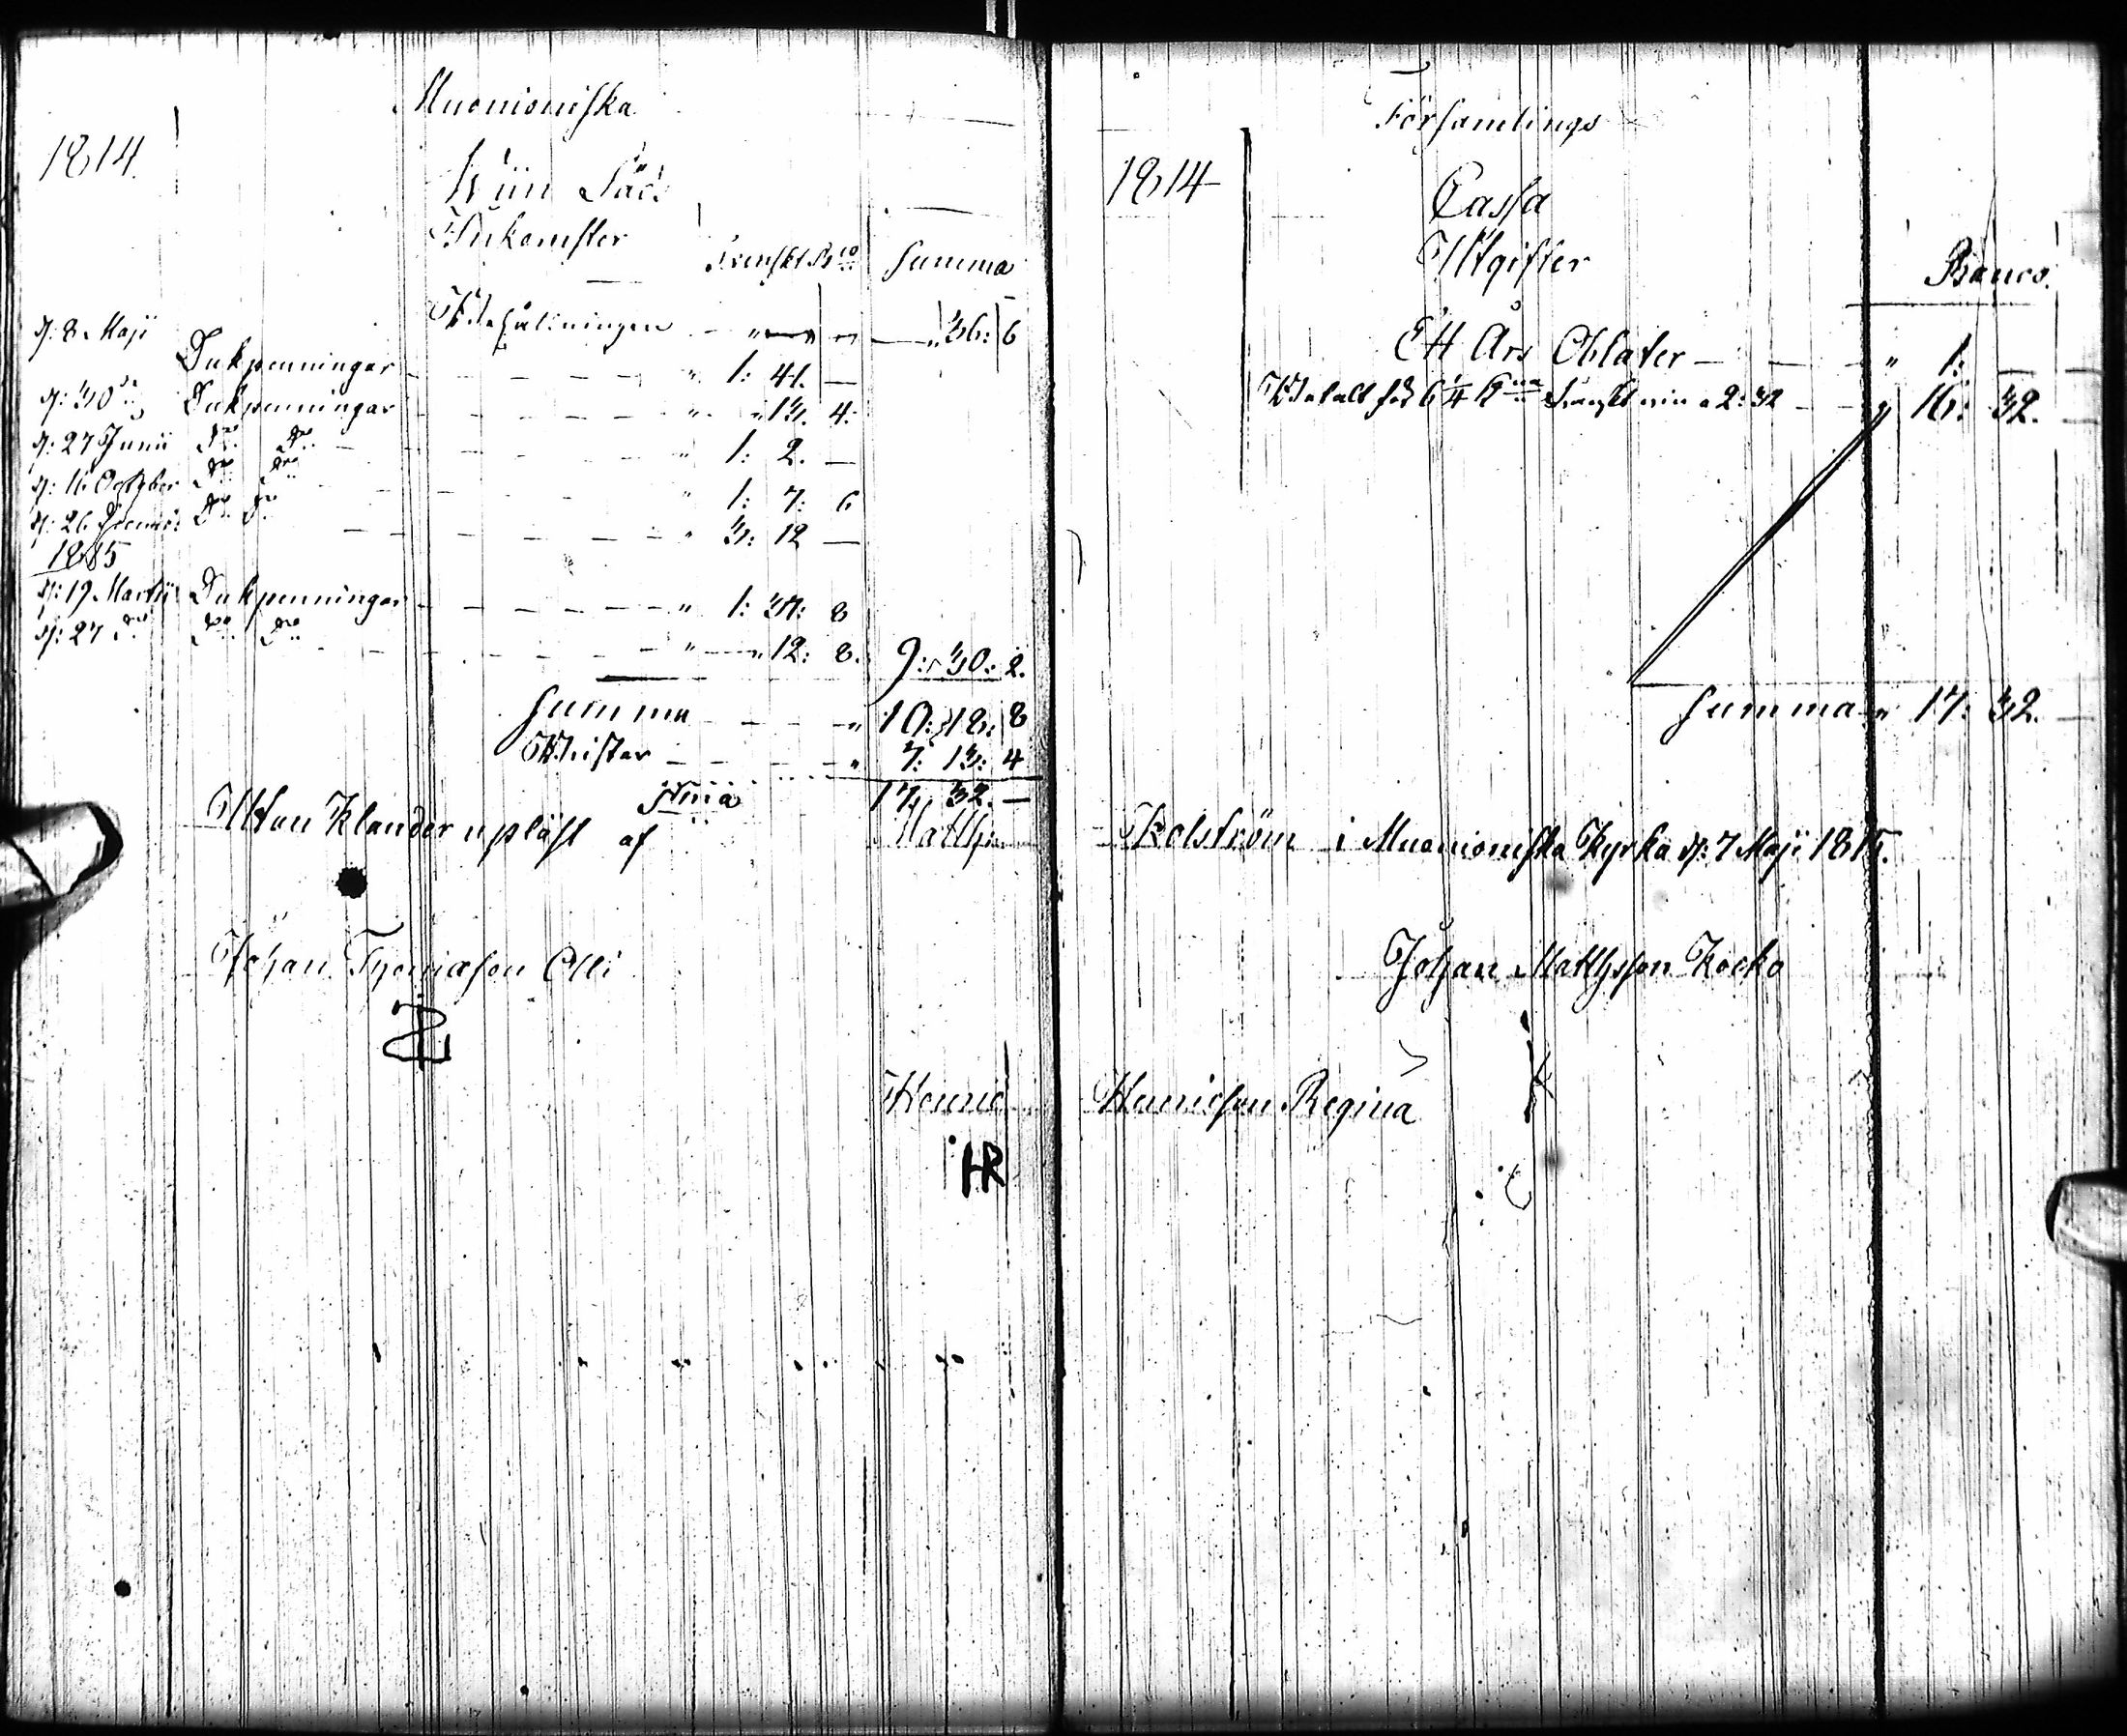 Muonioniska
1814.
Wiin Säd
Inkomster
Svenskt B:co Summa
Behållningen - " - " - " 36: 6
d: 8 Maji Dukpenningar - - - " 1: 41. —
d: 30 d:o Dukpenningar - - - " " 13. 4.
d: 27 Junii D:o D:o - - - " 1: 2. —
d: 16 October D:o D:o - - - " 1: 7: 6
d: 26 Decemb: D:o D:o - - - " 3: 12 —
1815
d: 19 Martii Dukpenningar - - - " 1: 37: 8
d: 27 D:o D:o D:o - - - " " 12: 8. 9: 30: 2.
Summa - - - " 10: 18: 8
Brister - - - " 7: 13: 4
17: 32. —
Utan Klander upläst af Matths
Johan Thomasson Olli
Henric
HR
Församlings
1814
Cassa
Utgifter
Banco.
Ett Års Oblater - - - " 1: —
Betalt för 6 1/4 K:na Franskt vin a 2: 32 - - " 16: 32. —
Summa " 17: 32. —
Kolström i Muonioniska Kyrka d: 7 Maji 1815.
Johan Mattsson Kocko
Henricson Regina